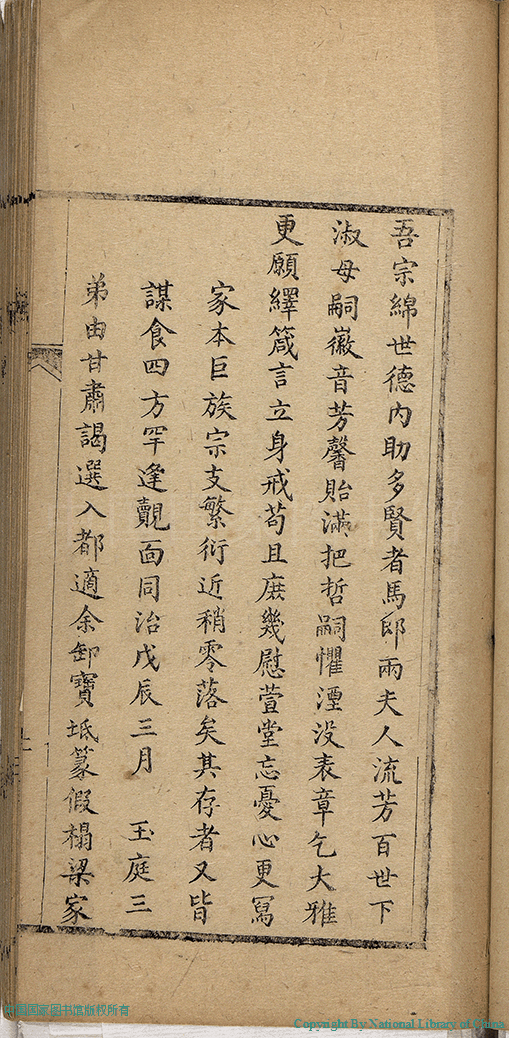 吾宗綿世德内助多賢者馬郎兩夫人流芳百世下
淑母嗣徽音芳馨貽滿把哲嗣懼湮没表章乞大雅
更願繹箴言立身戒苟且庶幾慰萱堂忘憂心更寫
家本巨族宗支繁衍近稍零落矣其存者又皆
謀食四方罕逢覿面同治戊辰三月 玉庭三
弟由甘肅謁選入都適余卸寶坻篆假榻梁家
中国国家图书馆版权所有
Copyright By National Library of China